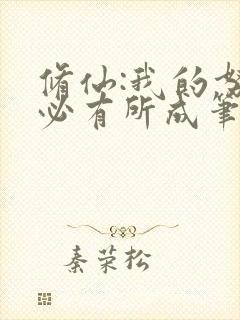 修仙:我的努
必有所成笔
秦荣松